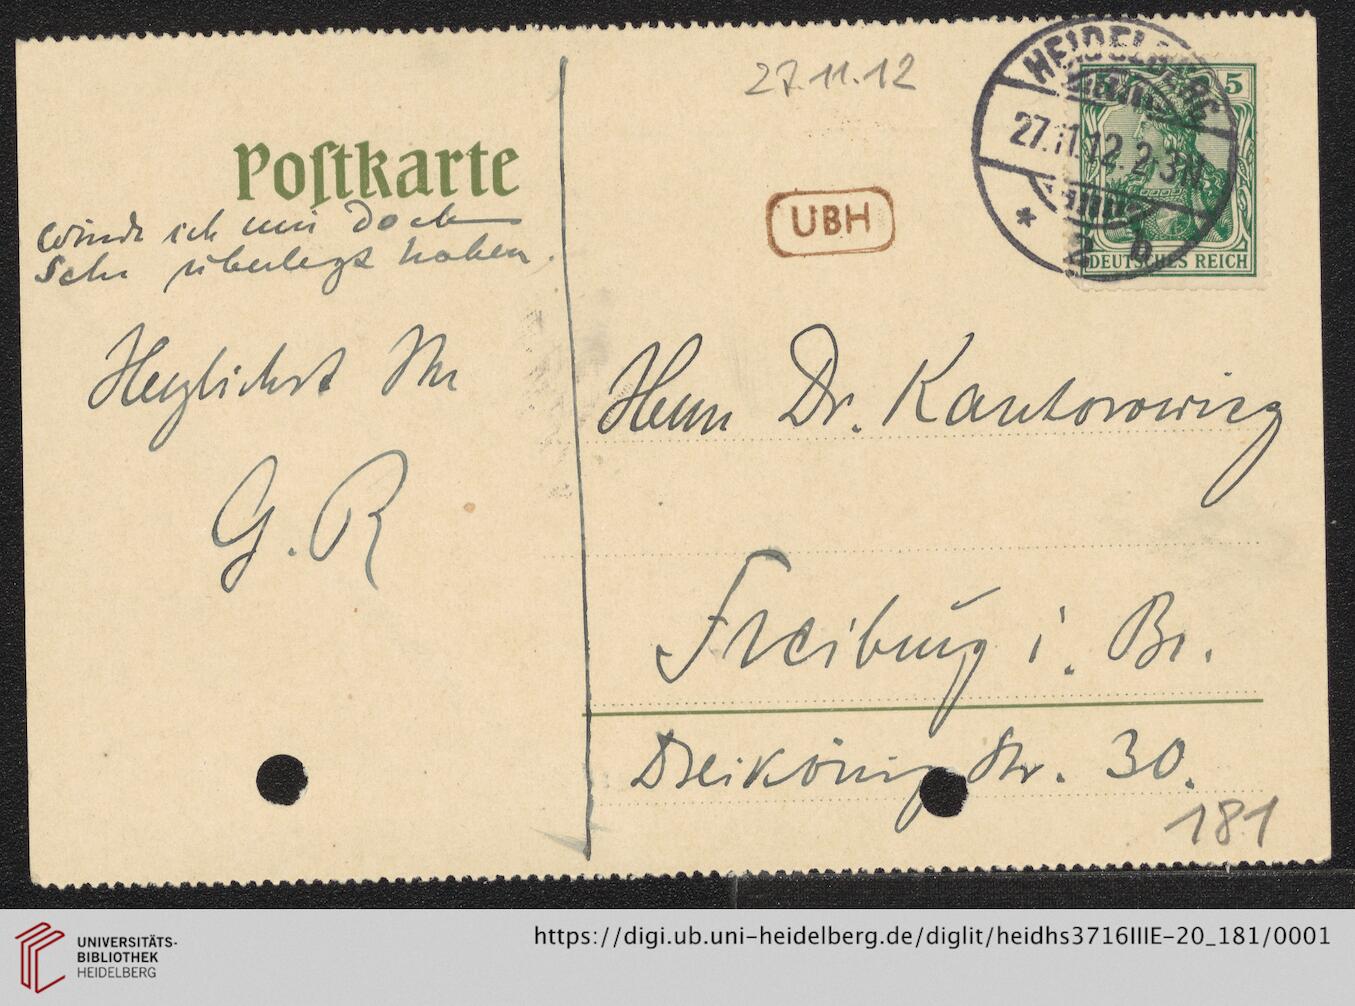 27.11.12
HEIDELBERG
27.11.12. 2-3N
* 2 b
5
DEUTSCHES REICH
Poſtkarte
UBH
würde ich mir doch
sehr überlegt haben.
Herzlichst Ihr
G. R
Herrn Dr. Kantorowicz
Freiburg i. Br.
Dreikönig Str. 30.
181
UNIVERSITÄTS-
BIBLIOTHEK
HEIDELBERG
https://digi.ub.uni-heidelberg.de/diglit/heidhs3716IIIE-20_181/0001